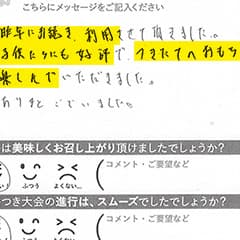 こちらにメッセージをご記入ください
昨年に引続き、利用させて頂きました。
子供たちにも好評で、つきたてへおもち
楽しんでいただきました。
ありがとうございました。
は美味しくお召し上がり頂けましたでしょうか?
ふつう
よくない…
コメント・ご要望など
つき大会の進行は、スムーズでしたでしょうか?
ふつう
よくない…
コメント・ご要望など